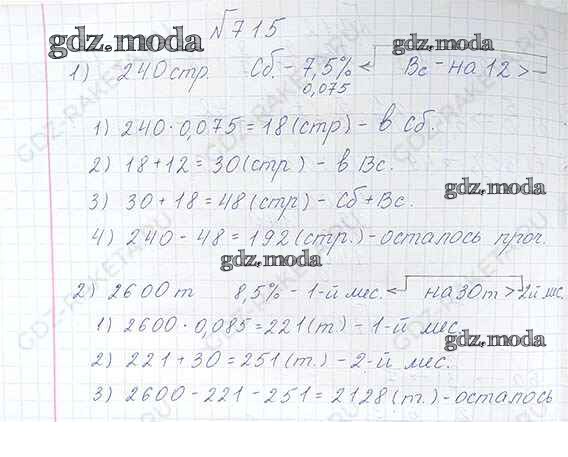 №715
gdz.moda
1) 240 стр. Сб. - 7,5% Вс - на 12 > -
0,075
1) 240 · 0,075 = 18 (стр) - в Сб.
2) 18 + 12 = 30 (стр) - в Вс.
3) 30 + 18 = 48 (стр) - Сб + Вс.
gdz.moda
4) 240 - 48 = 192 (стр.) - осталось проч.
gdz.moda
2) 2600 т 8,5% - 1-й мес. на 30 т > 2й мес.
1) 2600 · 0,085 = 221 (т) - 1-й мес.
gdz.moda
2) 221 + 30 = 251 (т.) - 2-й мес.
3) 2600 - 221 - 251 = 2128 (т.) - осталось
GDZ-RAKETA.RU